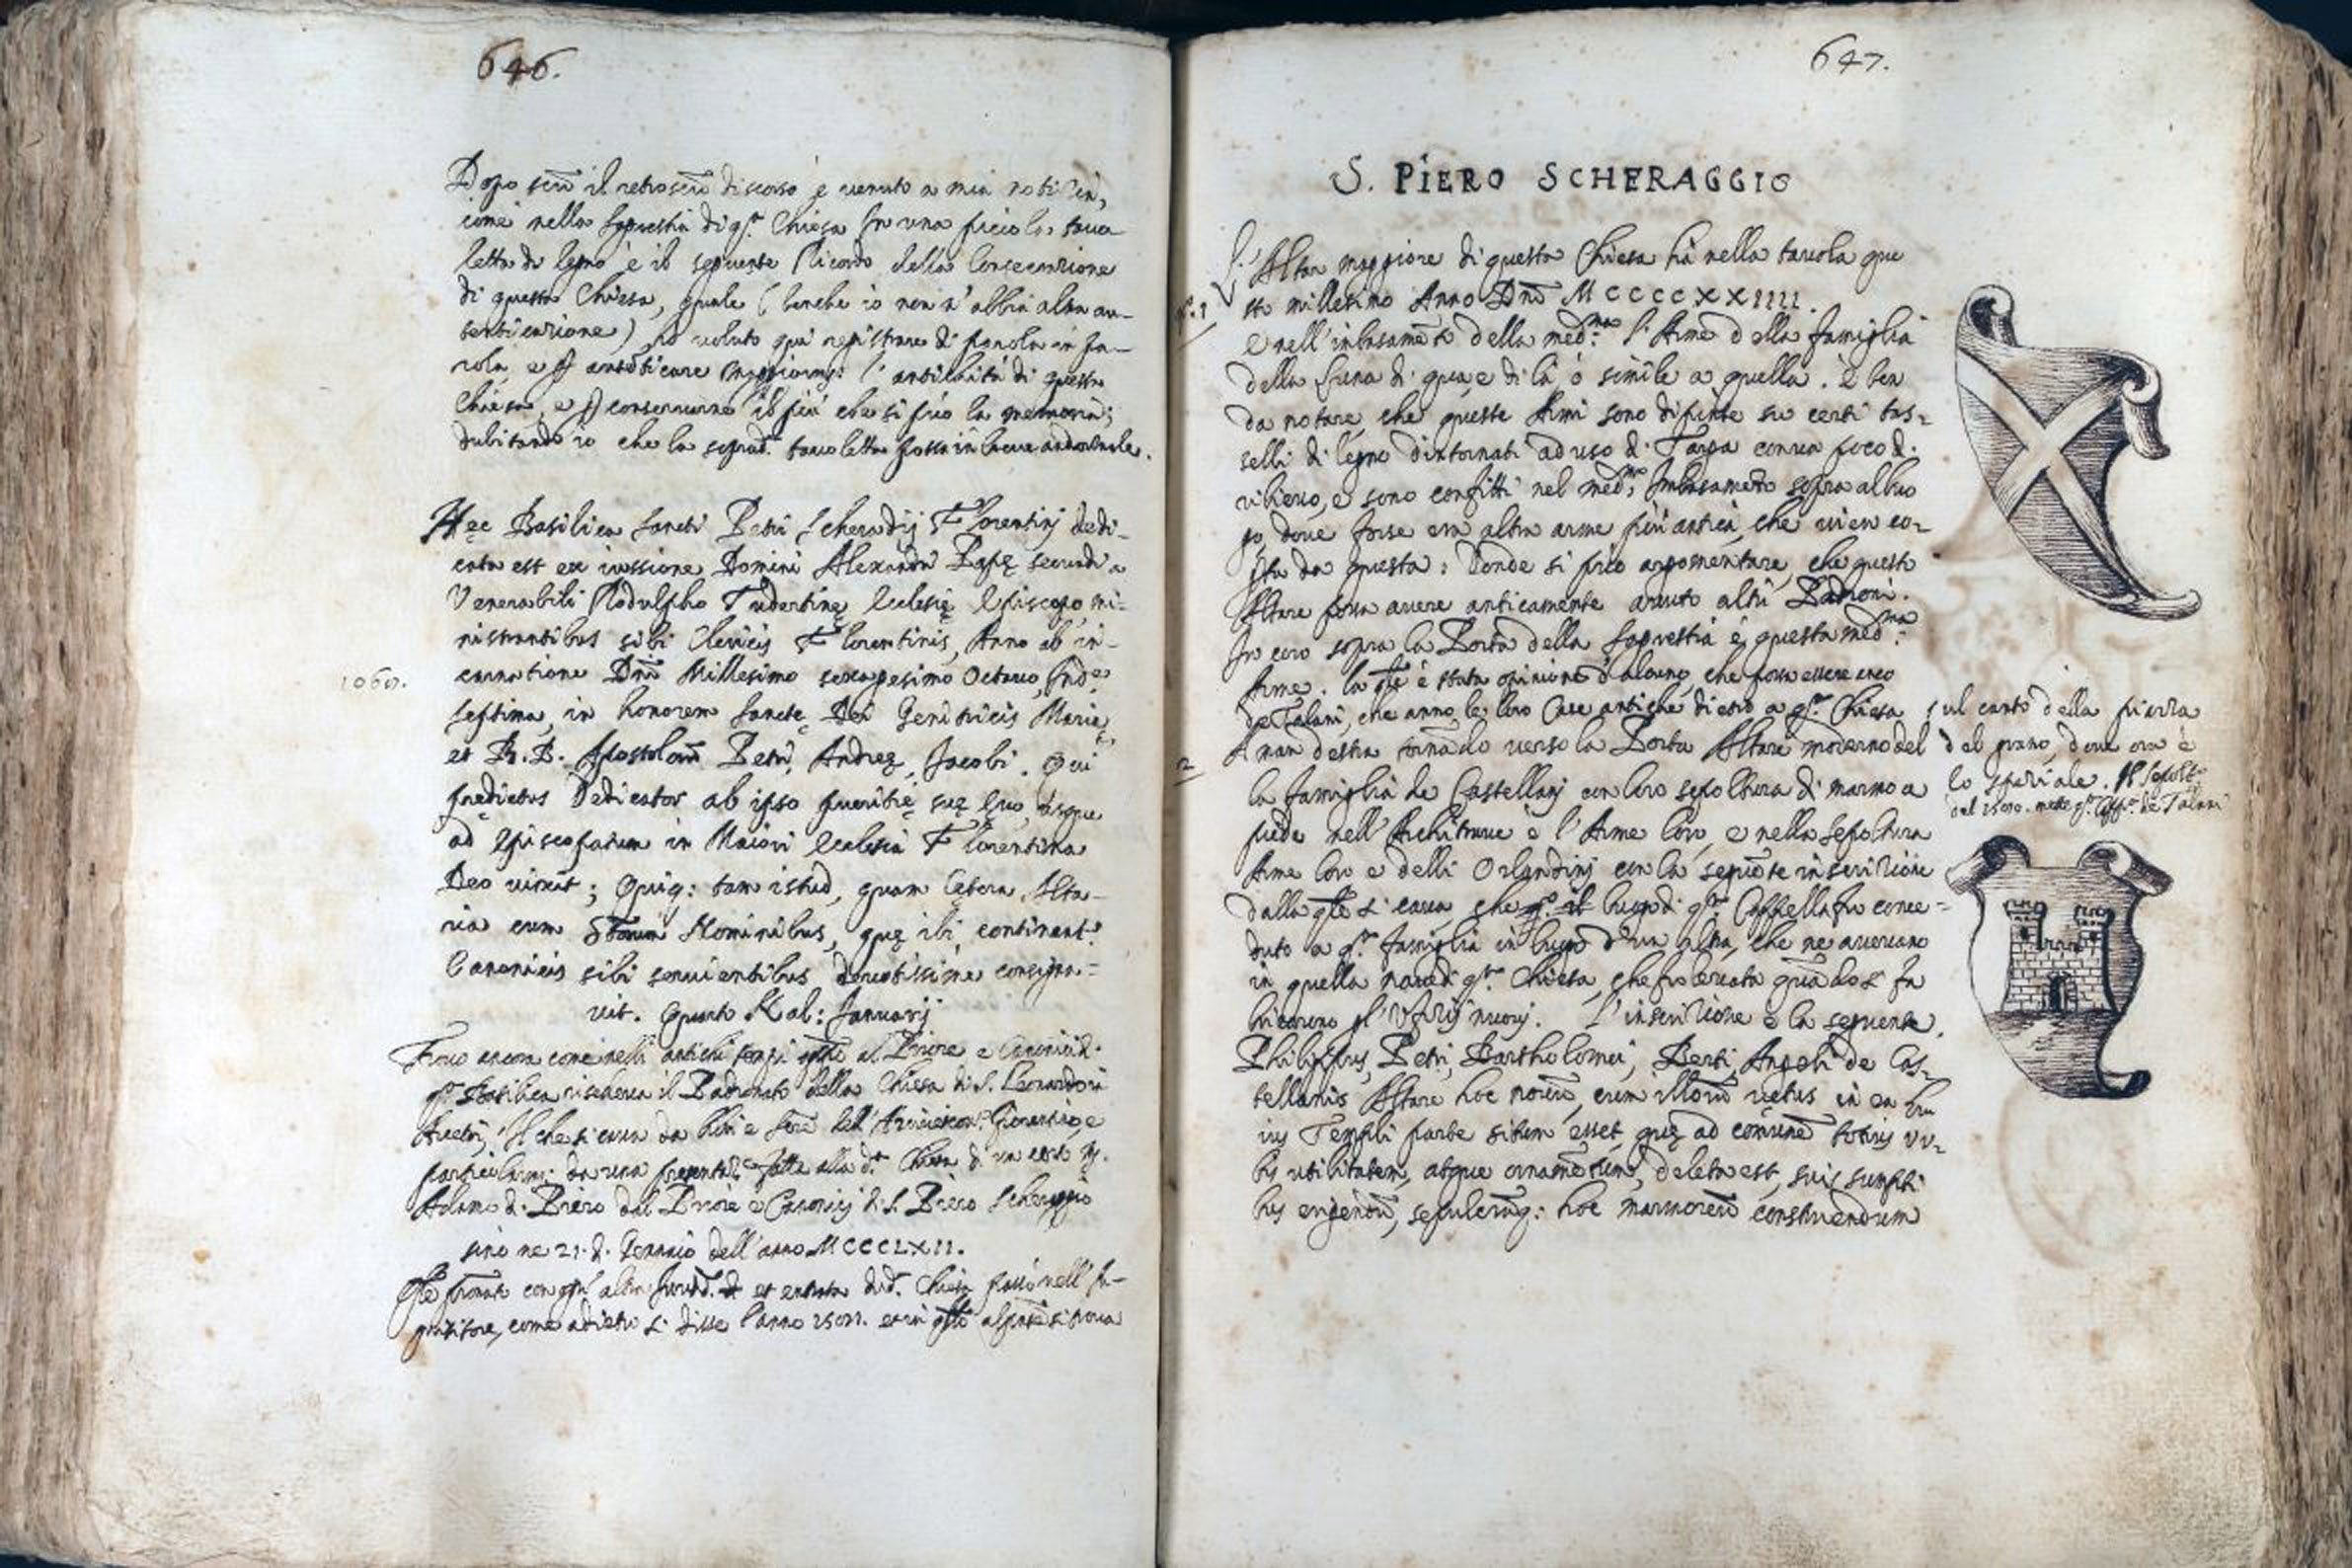 646.
Dopo scrò il retroscrò discorso è venuto a mia notizia,
come nella sagrestia di q.ª Chiesa in una picciola tavo
letta di legno è il seguente Ricordo della Consecrazione
di questa Chiesa, quale (benche io non n'abbia altra au-
tenticazione) ho voluto quì registrare di parola in pa-
rola, e p autẽticare maggiorm: l'antichità di questa
Chiesa, e p conservarne il più che si può la memoria;
dubitando io che la soprad.ª tavoletta possa in breve andar male.
Hęc Basilica Sancti Petri Scheradij Florentinj dedi-
cata est ex iussione Domini Alexandri Papę secundi a
Venerabili Rodulpho Tudertinę Ecclesię Episcopo mi-
nistrantibus sibi Clericis Florentinis, Anno ab in-
1068.
carnatione Dñi Millesimo sexagesimo Octavo, Inde
septima, in honorem Sanctę Dei Genitricis Marię,
et B.B. Apostolorũ Petri, Andreę, Jacobi. Qui
prędictus Dedicator ab ipso pueritię suę ęvo, usque
ad Episcopatum in Maiori Ecclesia Florentina
Deo vixit; Quiq: tam istud, quam Cętera Alta-
ria cum Nominibus, quę ibi continent.
Canonicis sibi servientibus devotissime consigna-
vit. Quarto Kal: Januarij
Trovo ancora come nelli antichi tempi al Priore e Canonici d.
q.ª Basilica risedeva il Padronato della Chiesa di S. Leonardo in
Arcetri, Il che si cava da libri e dell'
particularm: da una fatta alla d.ª Chiesa di un M.
Adamo d. Piero dal Priore e Canonicj d. S. Piero Scheraggio
sino ne 21. d. Gennaio dell'anno MCCCLXII.
con altra et entrata di d.ª Chiesa passò nell'
come adietro si disse l'anno
647.
S. PIERO SCHERAGGIO
N.º 1
L'Altar maggiore di questa Chiesa hà nella tavola que
sto millesimo Anno Dñi MCCCCXXIIII.
e nell'inbasamẽto della med:ma l'Arme della famiglia
della Luna di qua, e di là ò simile a quella. è ben
da notare, che queste Armi sono dipinte su certi tas-
selli di legno dintornati ad uso di Targa con un poco d.
rilievo, e sono confitti nel med:mo Imbasamẽto sopra al luo
go, dove forse era altra arme più antica, che vien co-
perta da questa: Donde si può argomentare, che questo
Altare possa avere anticamente avuto altri Padroni.
In coro sopra la Porta della Sagrestia è questa med:ma
Arme. la q̃le è stata opinione d'alcuno, che possa essere anco
de Talani, che anno le loro Case antiche dietro a q.ª Chiesa
sul canto della piazza
del grano, dove ora è
lo speziale.
2
A man destra tornãdo verso la Porta Altare moderno del
la famiglia de Castellanj con loro sepoltura di marmo a
piede nell'Architrave è l'Arme loro, e nella sepoltura
Arme loro e delli Orlandinj con la seguẽte inscrizione
dalla q̃le si cava che il luogo di q.ª Cappella fu conce-
duto a q.ª famiglia in luogo d'un altra, che ne avevano
in quella nave di q.ª Chiesa, che fu levata quãdo si fa
bricorono gl'Ufizij nuovj. L'inscrizione è la seguente.
Philippus, Petri, Bartholomei, Berti, Angeli de Cas-
tellanis Altare hoc novũ, cum illorũ vetus in ea hu
ius Templi parte situm esset, quę ad comunẽ totius ur-
bis utilitatem, atque ornamẽtum, deleta est, suis sumpti
bus erigendũ, sepulcrũq: hoc marmoreũ construendum